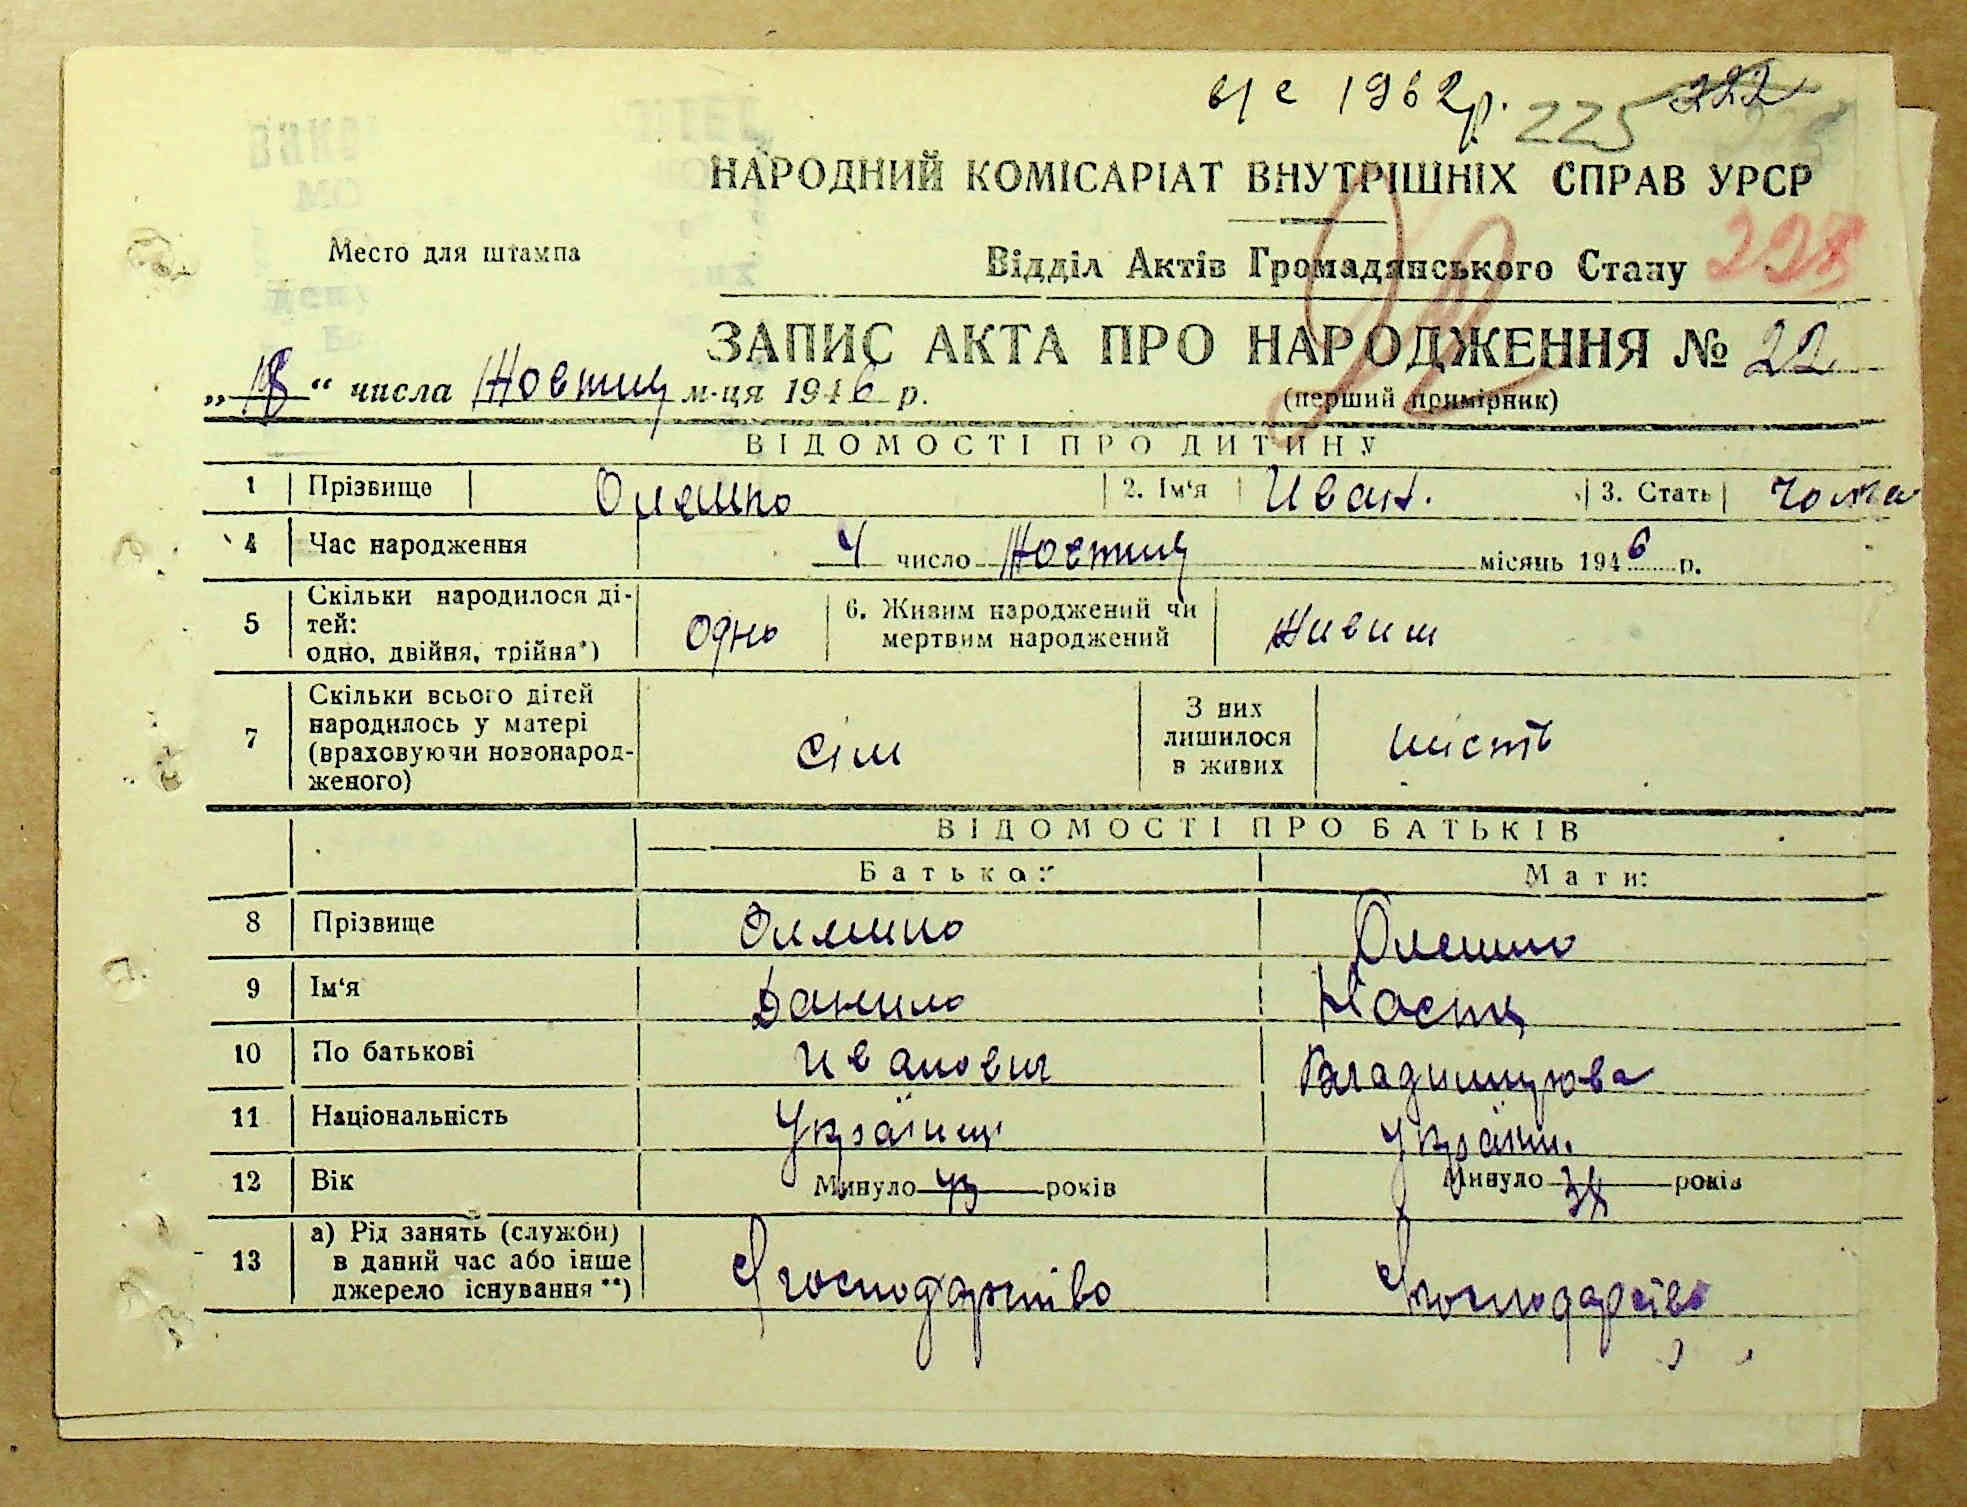 в/с 1962р. 225 222
НАРОДНИЙ КОМІСАРІАТ ВНУТРІШНІХ СПРАВ УРСР
Место для штампа
Відділ Актів Громадянського Стану 228
ЗАПИС АКТА ПРО НАРОДЖЕННЯ № 22
„18“ числа Жовтня м-ця 1946 р.
(перший примірник)
ВІДОМОСТІ ПРО ДИТИНУ
1 Прізвище Оляшко 2. Ім‘я Иван. 3. Стать чоло
4 Час народження 4 число Жовтня місяць 1946 р.
5 Скільки народилося ді-
тей:
одно, двійня, трійня*) одно 6. Живим народжений чи
мертвим народжений живим
7 Скільки всього дітей
народилось у матері
(враховуючи новонарод-
женого) сім З них
лишилося
в живих шість
ВІДОМОСТІ ПРО БАТЬКІВ
Батько: Мати:
8 Прізвище Оляшко Олешко
9 Ім‘я Данило Настя
10 По батькові Иванович Владимирова
11 Національність Українц Україн.
12 Вік Минуло 43 років Минуло 38 років
13 а) Рід занять (служби)
в даний час або інше
джерело існування **) господарство господарство